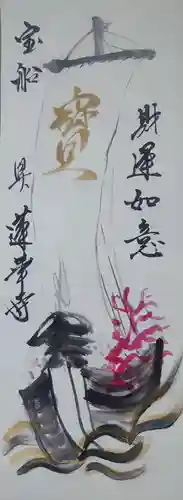 財運如意
寶
宝船
呉 蓮華寺